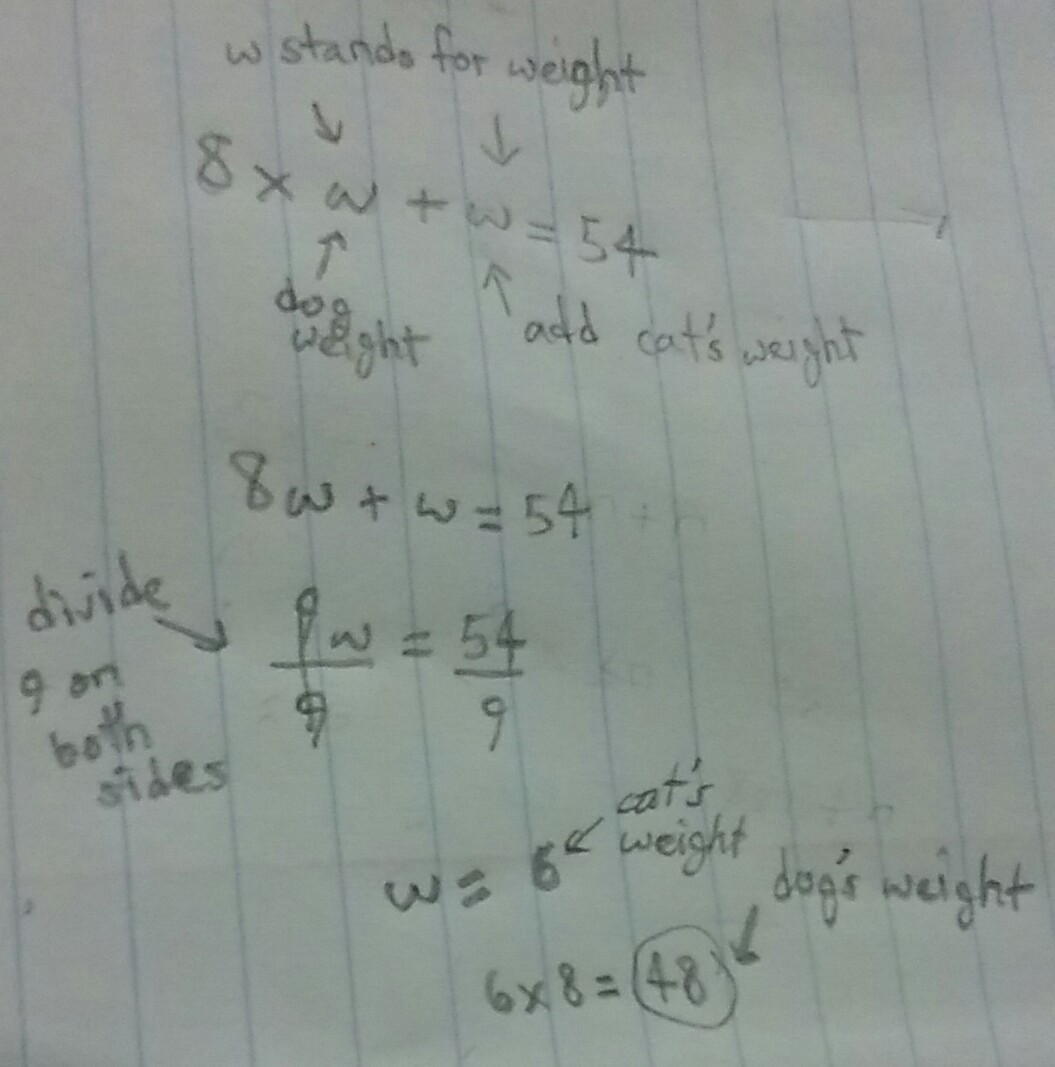 w stands for weight
↓ ↓
8 × w + w = 54
↑ ↑
dog
weight
add cat's weight
8w + w = 54
divide
9 on
both
sides
9w = 54
9 9
cat's
weight
w = 6
dog's weight
6 × 8 = 48